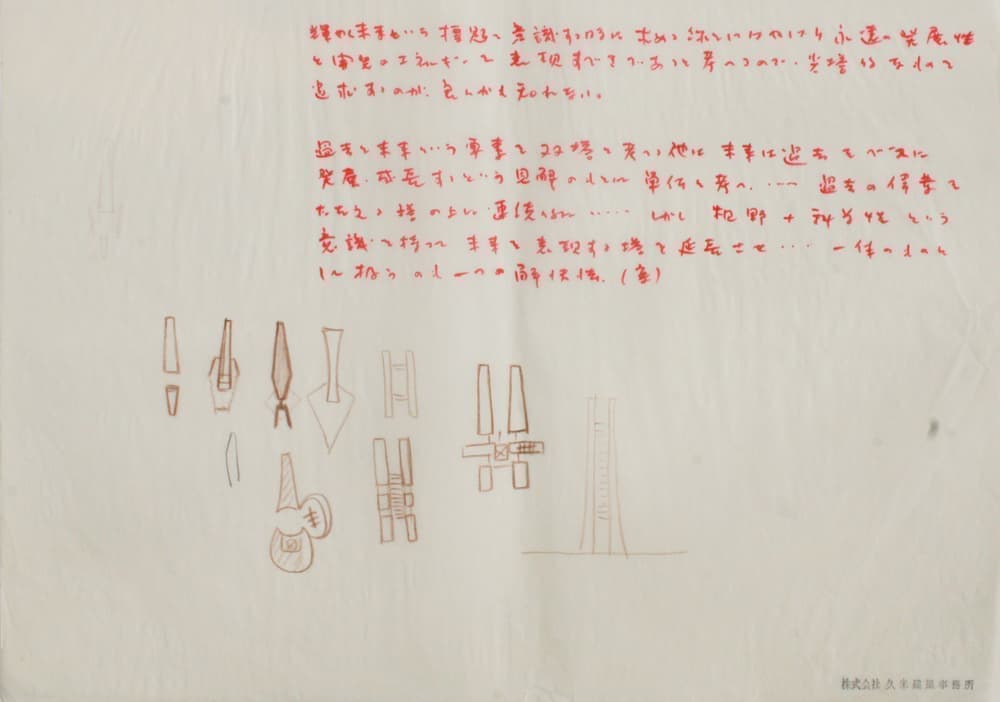 輝く未来という標題を意識する時に求める 永遠の発展性
と開発のエネルギーを表現すべきであると考へるので、尖塔的なものを
追求するのが、良いかも知れない。
過去と未来という要素を双塔と考へる他に未来は過去をベースに
発展、成長するという見解のもとに単体と考へ、…… 過去の偉業を
たたえる塔の上に連続 …… しかし 視野 + 科学性 という
意識を持って 未来を表現する塔を延長させ …… 一体のもの
に扱うのも一つの解決法。(案)
株式会社 久米建築事務所